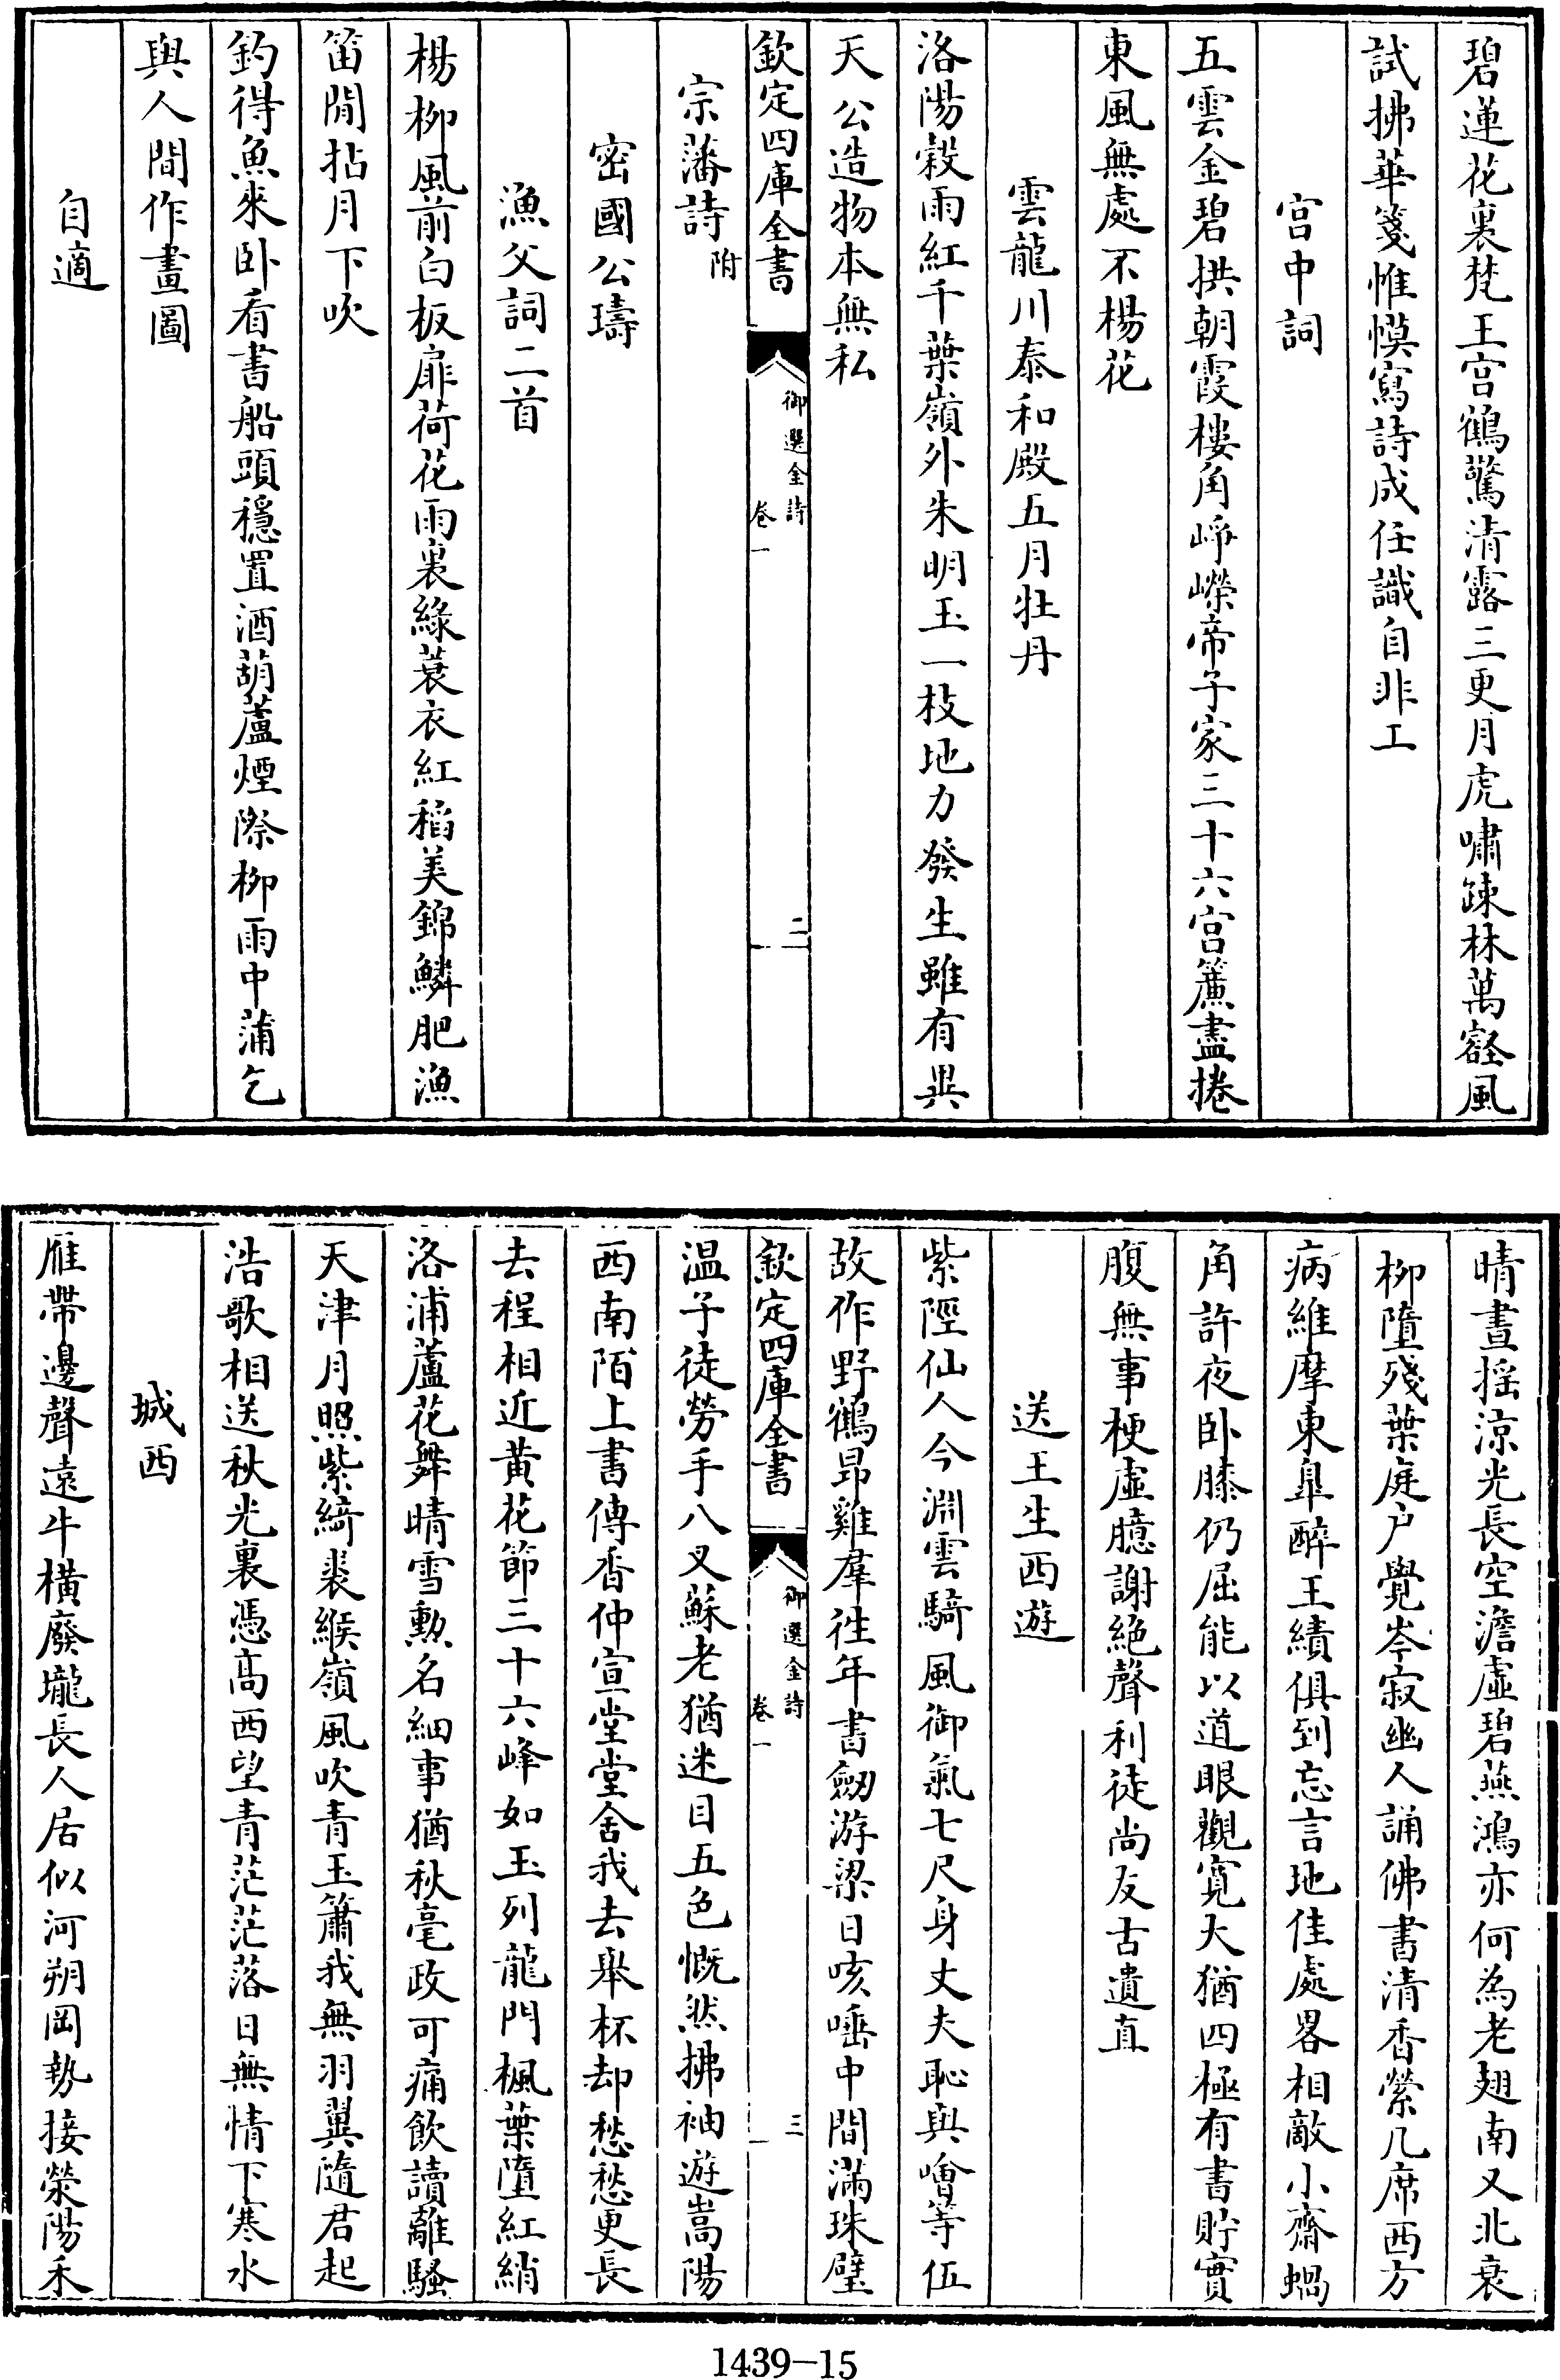 碧蓮花裏梵王宫鶴驚清露三更月虎嘯踈林萬壑風
試拂華箋惟愞寫詩成任識自非工
宫中詞
五雲金碧拱朝霞樓角崢嶸帝子家三十六宫簾盡捲
東風無處不楊花
雲龍川泰和殿五月牡丹
洛陽穀雨紅千葉嶺外朱明玉一枝地力發生雖有異
天公造物本無私
欽定四庫全書
御選金詩
卷一
二
宗藩詩附
密國公璹
漁父詞二首
楊柳風前白板扉荷花雨裏綠蓑衣紅稻美錦鱗肥漁
笛閒拈月下吹
釣得魚來卧看書船頭穩置酒葫蘆煙際柳雨中蒲乞
與人間作畫圖
自適
晴晝揺涼光長空澹虛碧燕鴻亦何為老翅南又北衰
柳墮殘葉庭户覺岑寂幽人誦佛書清香縈几席西方
病維摩東臯醉王績俱到忘言地佳處畧相敵小齋蝸
角許夜卧膝仍屈能以道眼觀寛大猶四極有書貯實
腹無事梗虛臆謝絶聲利徒尚友古遺直
送王生西遊
紫陘仙人今淵雲騎風御氣七尺身丈夫恥與噲等伍
故作野鶴昂雞羣徃年書劒游梁日咳唾中間滿珠璧
欽定四庫全書
御選金詩
卷一
三
温子徒勞手八叉蘇老猶迷目五色慨然拂袖遊嵩陽
西南陌上書傳香仲宣堂堂舍我去舉杯却愁愁更長
去程相近黄花節三十六峰如玉列龍門楓葉墮紅綃
洛浦蘆花舞晴雪勲名細事猶秋毫政可痛飲讀離騷
天津月照紫綺裘緱嶺風吹青玉簫我無羽翼隨君起
浩歌相送秋光裏憑高西望青茫茫落日無情下寒水
城西
雁帶邊聲遠牛橫廢壠長人居似河朔岡勢接滎陽禾
1439-15